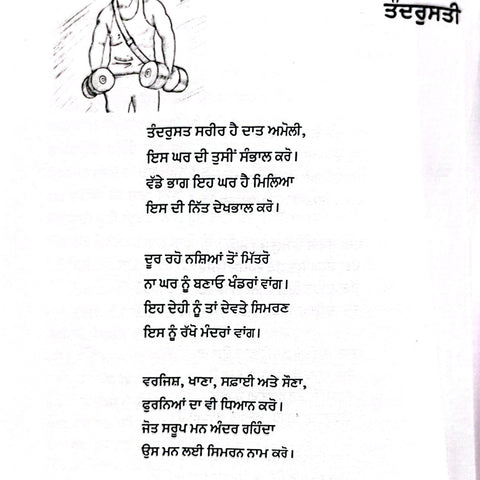 ਤੰਦਰੁਸਤੀ
ਤੰਦਰੁਸਤ ਸਰੀਰ ਹੈ ਦਾਤ ਅਮੋਲੀ,
ਇਸ ਘਰ ਦੀ ਤੁਸੀਂ ਸੰਭਾਲ ਕਰੋ।
ਵੱਡੇ ਭਾਗ ਇਹ ਘਰ ਹੈ ਮਿਲਿਆ
ਇਸ ਦੀ ਨਿੱਤ ਦੇਖਭਾਲ ਕਰੋ।
ਦੂਰ ਰਹੋ ਨਸ਼ਿਆਂ ਤੋਂ ਮਿੱਤਰੋ
ਨਾ ਘਰ ਨੂੰ ਬਣਾਓ ਖੰਡਰਾਂ ਵਾਂਗ।
ਇਹ ਦੇਹੀ ਨੂੰ ਤਾਂ ਦੇਵਤੇ ਸਿਮਰਣ
ਇਸ ਨੂੰ ਰੱਖੋ ਮੰਦਰਾਂ ਵਾਂਗ।
ਵਰਜਿਸ਼, ਖਾਣਾ, ਸਫ਼ਾਈ ਅਤੇ ਸੌਣਾ,
ਫੁਰਨਿਆਂ ਦਾ ਵੀ ਧਿਆਨ ਕਰੋ।
ਜੋਤ ਸਰੂਪ ਮਨ ਅੰਦਰ ਰਹਿੰਦਾ
ਉਸ ਮਨ ਲਈ ਸਿਮਰਨ ਨਾਮ ਕਰੋ।